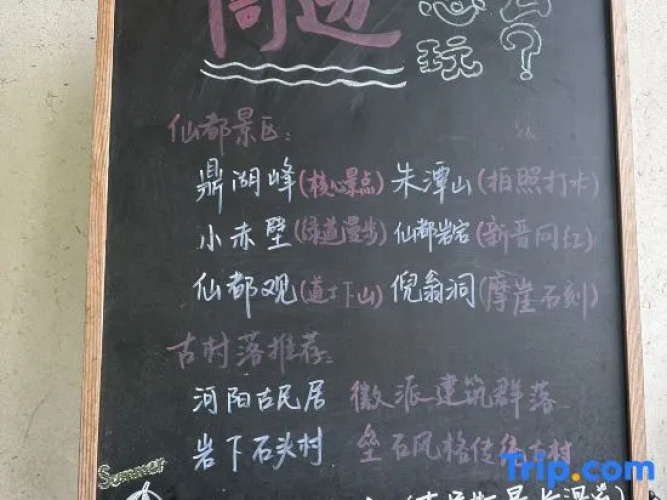 周边怎么
玩?
仙都景区:
鼎湖峰(核心景点) 朱潭山(拍照打卡)
小赤壁(绿道漫步) 仙都岩宕(新晋网红)
仙都观(道士下山) 倪翁洞(摩崖石刻)
古村落推荐:
河阳古民居 徽派建筑群落
岩下石头村 垒石风格传统古村
Summer
Trip.com